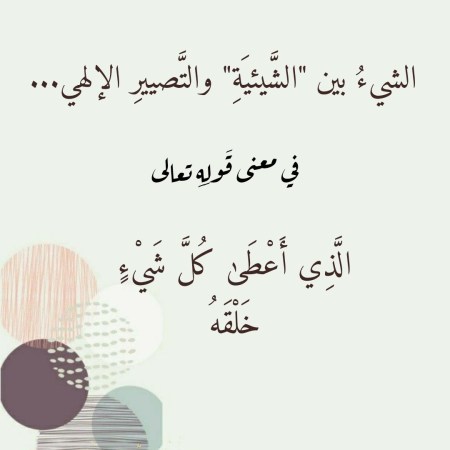 الشيءُ بين "الشَّيئيَةِ" والتَّصييرِ الإلهي...
في معنى قَولِه تعالى
الَّذِي أَعْطَىٰ كُلَّ شَيْءٍ
خَلْقَهُ